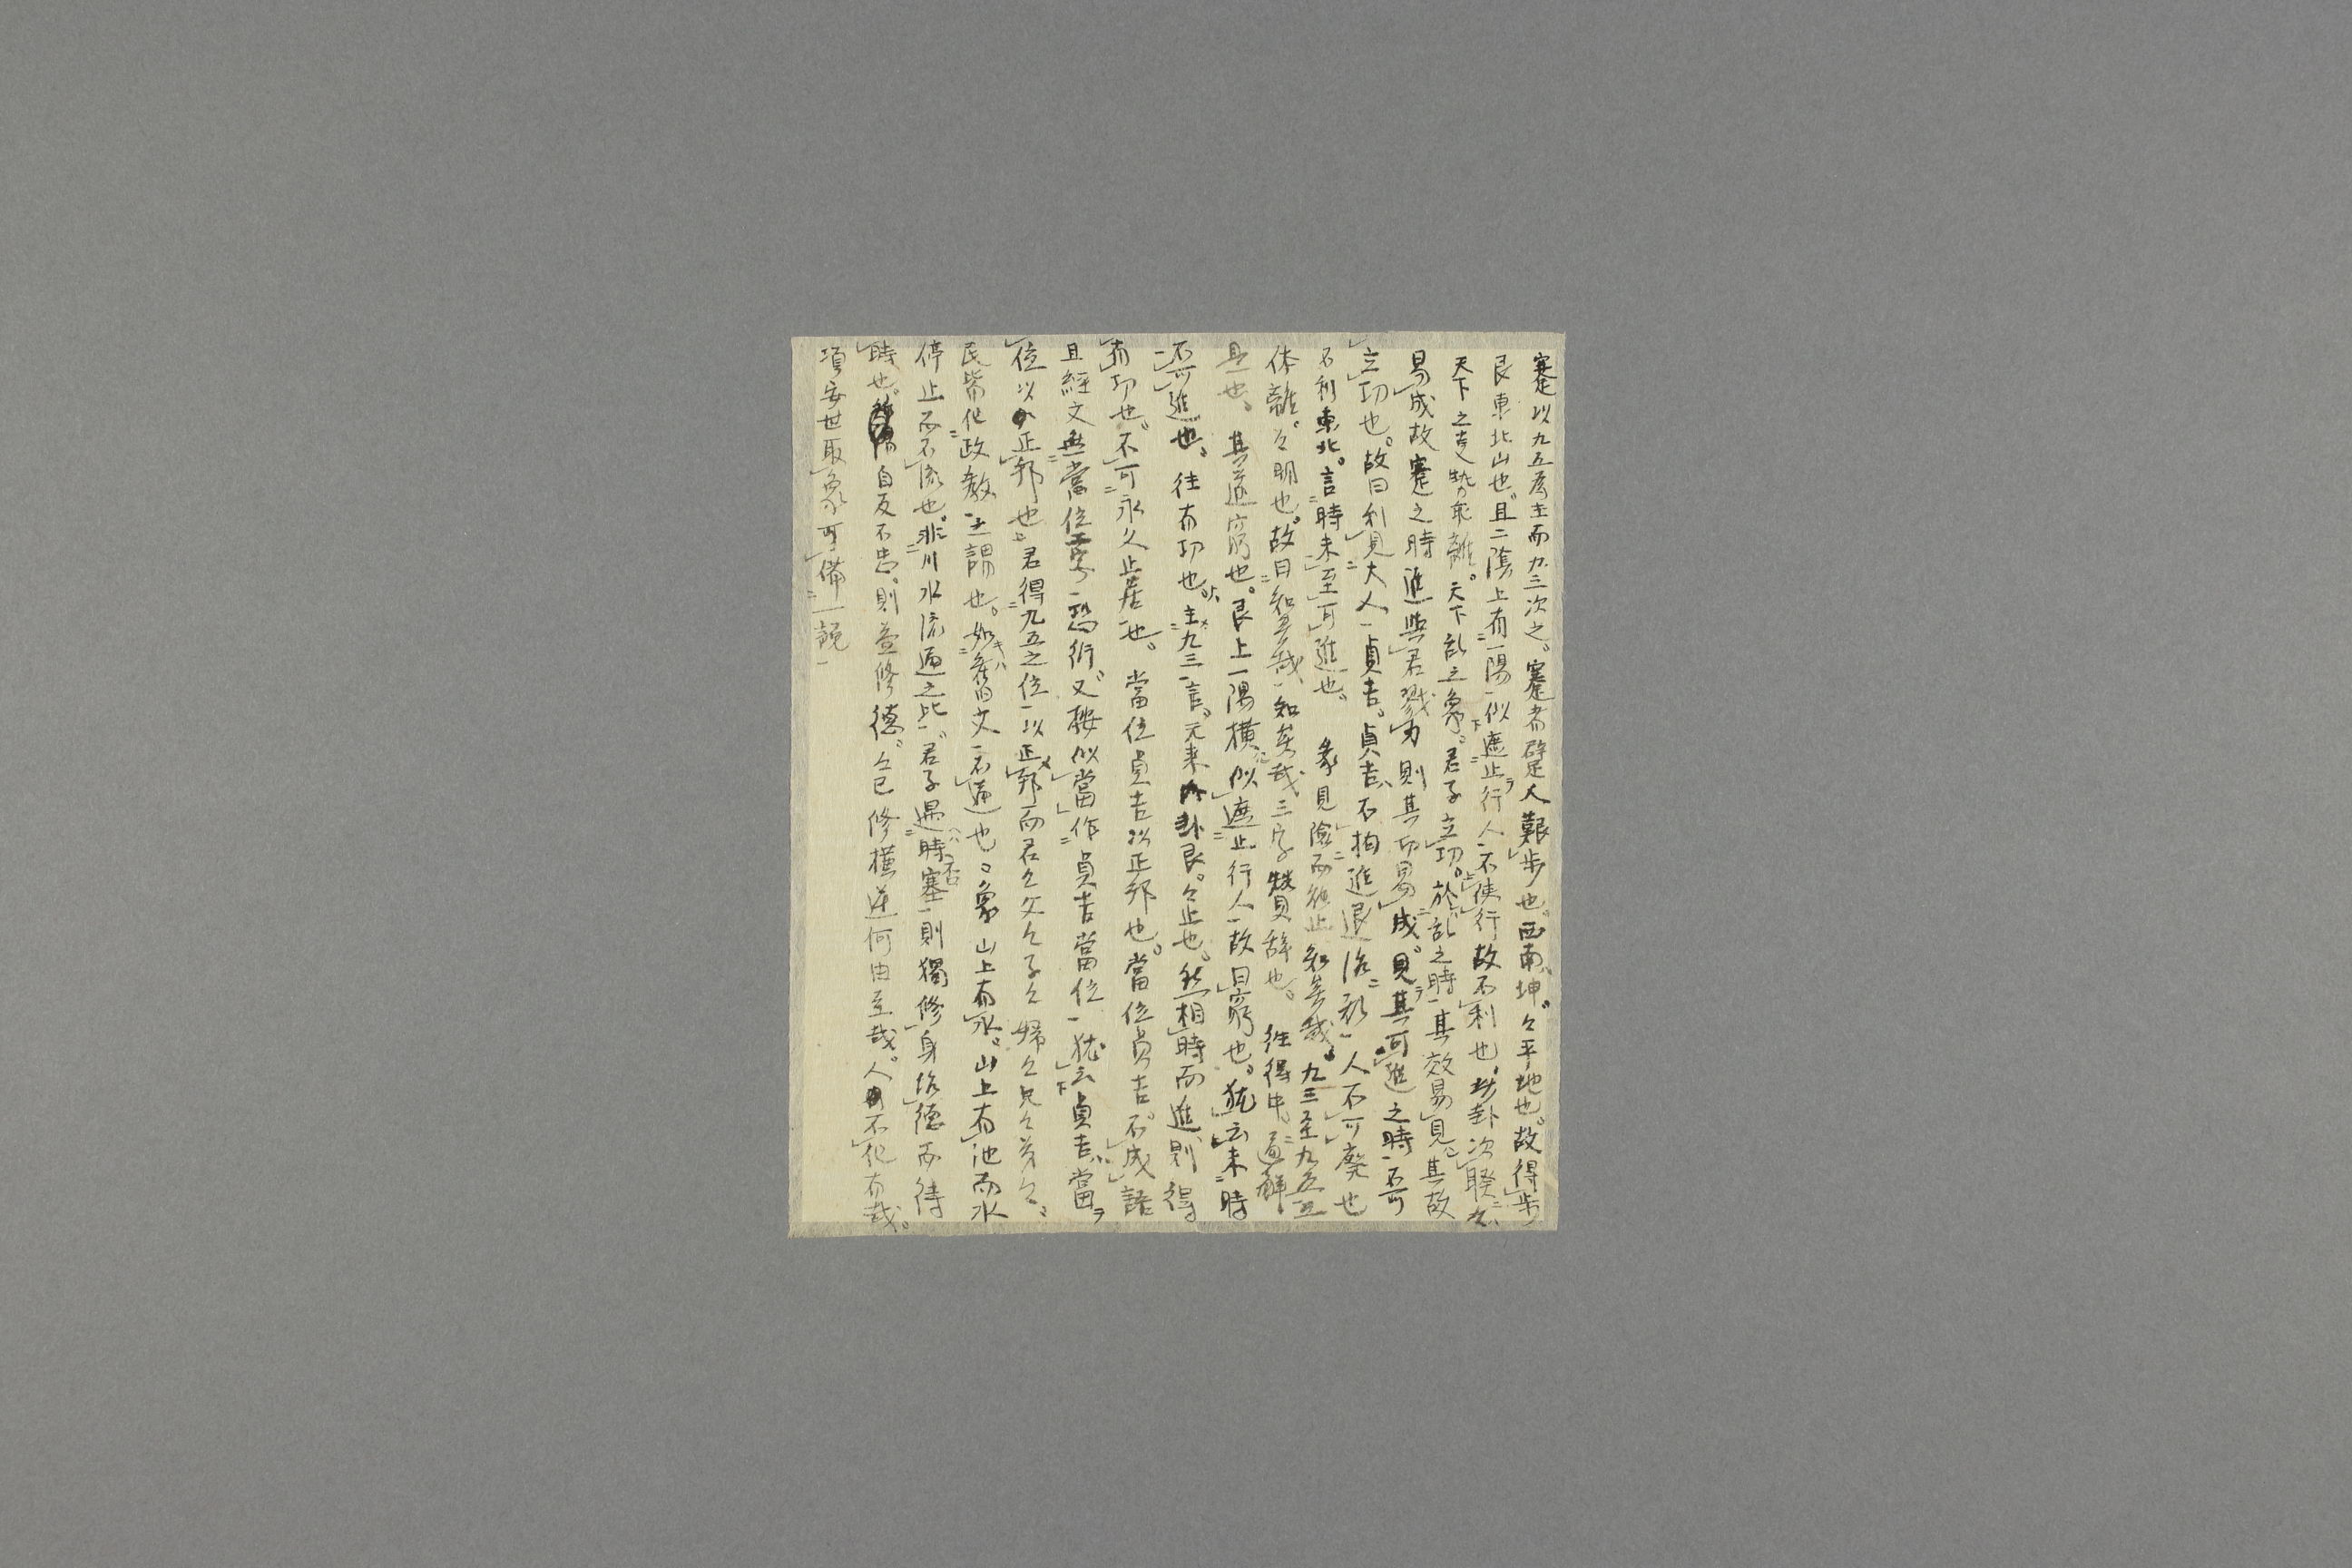 蹇以九五為主而九三次之。蹇者躄人艱歩也。西南、坤。々平地也。故得歩
艮東北山也。且二陰上有一陽似遮止行人不使行故不利也。此卦次睽
天下之支勢乖離。天下乱之象。君子立功。於乱之時其效易見其故
易成故蹇之時進与君戮力則其功易成。見其可進之時不可
立功也。故曰利見大人貞吉。貞吉不拘進退人不可廃也
不利東北。言時未至可進也。 彖見険而能止知矣哉。九三至九五互
体離。々明也。故曰知矣哉知矣哉三字賛辞也。 往得中道解
是也。其道窮也。艮上一陽横似遮止行人故曰窮也。猶云未時
不可進也。往有功也主九三言。元来卦艮。々止也。然相時而進則得
有功也。不可永久止居也。 當位貞吉以正邦也。當位貞吉不成語
且經文無當位字恐衍。又按似當作貞吉當位猶云貞吉當
位以正邦也。君得九五之位以正邦而君々父々子々婦々兄々弟々。
民皆化政教之謂也。如舊文不通也。象山上有水。山上有池而水
停止而不流也。非川水流通之比。君子遇時塞則獨修身治德而待
時也。自反不忠、則益修德。々已修横逆何由至哉。人不化有哉。
項安世取象可備一説